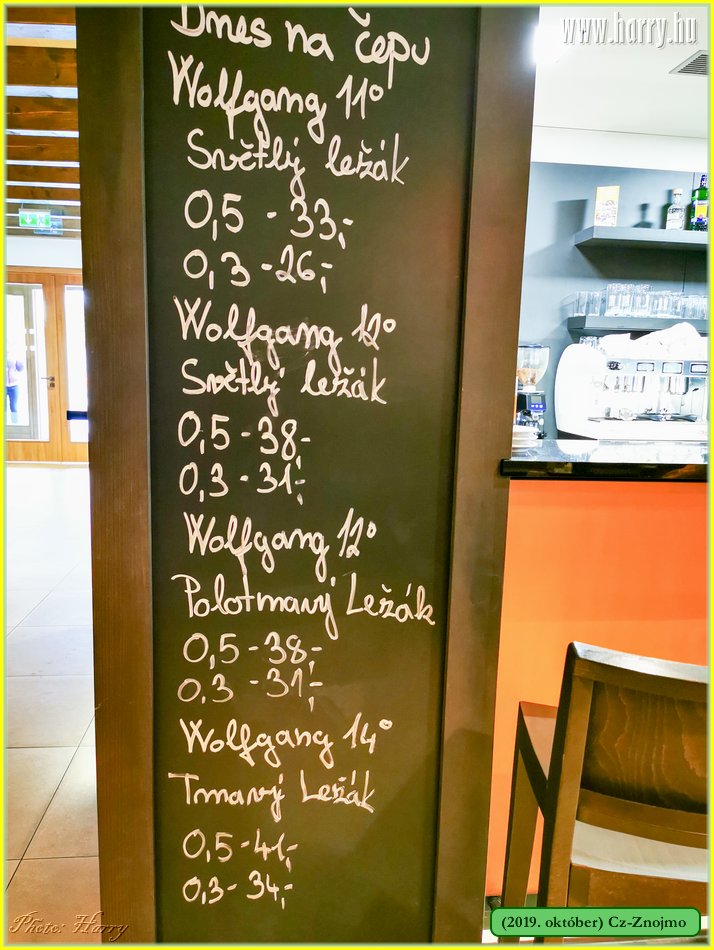 www.harry.hu
Dnes na čepu
Wolfgang 11°
Světlý ležák
0,5 - 33,-
0,3 - 26,-
Wolfgang 12°
Světlý ležák
0,5 - 38,-
0,3 - 31,-
Wolfgang 12°
Polotmavý Ležák
0,5 - 38,-
0,3 - 31,-
Wolfgang 14°
Tmavý Ležák
0,5 - 41,-
0,3 - 34,-
Photo: Harry
(2019. október) Cz-Znojmo